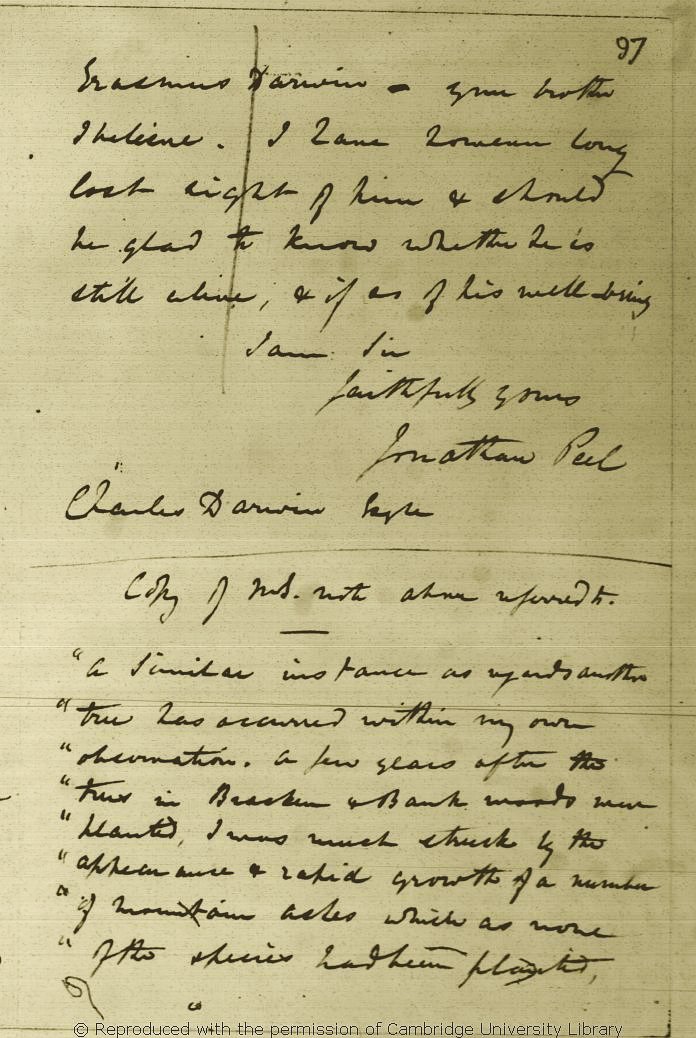 97
Erasmus Darwin – your brother
I believe. I have however long
lost sight of him & should
be glad to know whether he is
still alive, & if so of his well-being
I am Sir
faithfully yours
Jonathan Peel
Charles Darwin Esqre
Copy of MS. note above referred to.
"A similar instance as regards another
"tree has occurred within my own
"observation. A few years after the
"trees in Bracken & Bank woods were
"planted, I was much struck by the
"appearance & rapid growth of a number
"of mountain ashes which as none
"of the species had been planted,
© Reproduced with the permission of Cambridge University Library